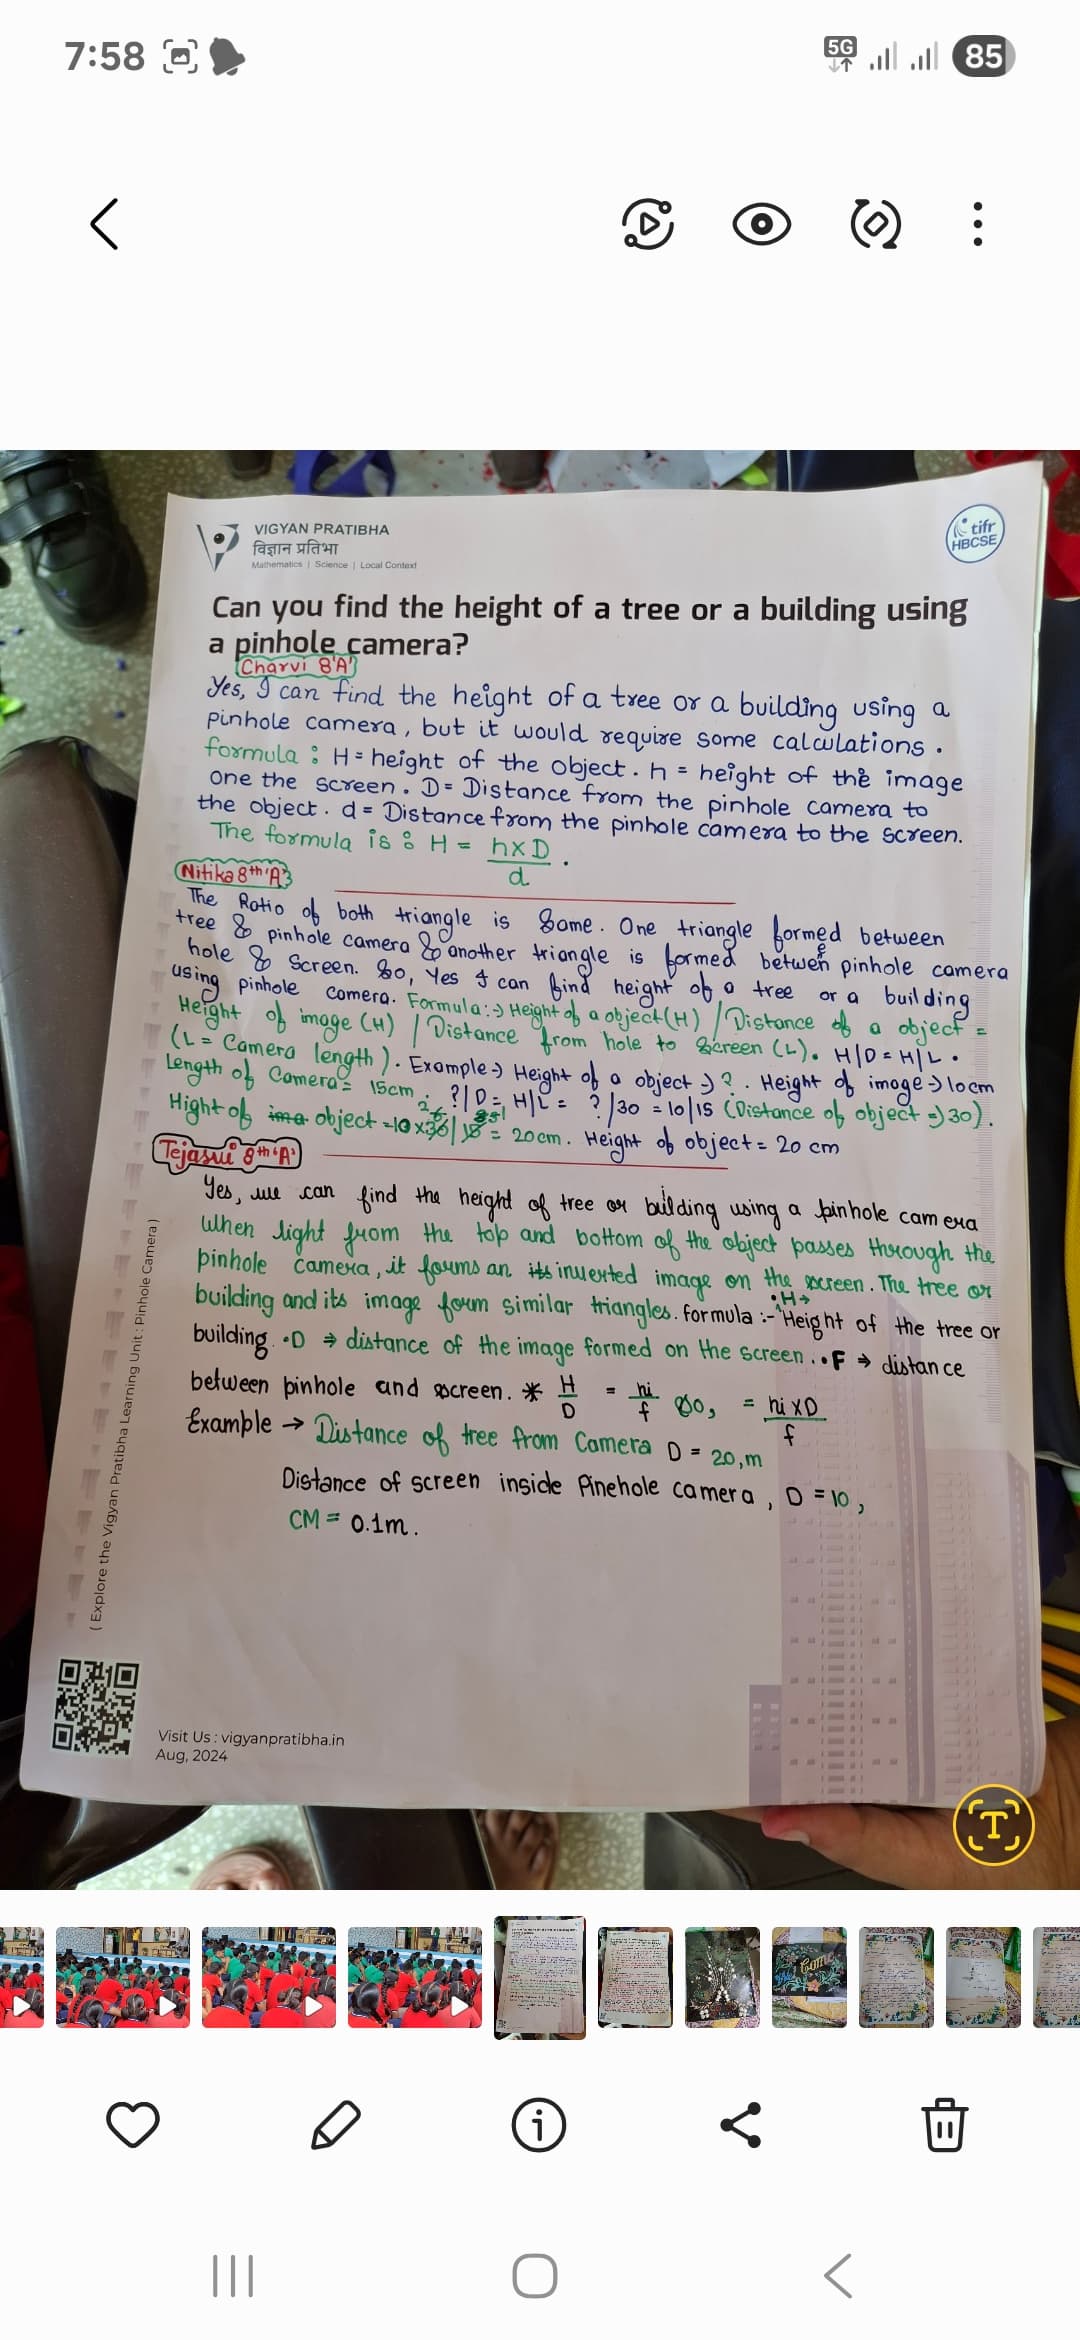 7:58
5G
85
VIGYAN PRATIBHA
विज्ञान प्रतिभा
Mathematics | Science | Local Context
tifr
HBCSE
Can you find the height of a tree or a building using
a pinhole camera?
Charvi 8'A'
Yes, I can find the height of a tree or a building using a
pinhole camera, but it would require some calculations.
formula : H = height of the object. h = height of the image
one the screen. D = Distance from the pinhole camera to
the object. d = Distance from the pinhole camera to the screen.
The formula is : H = h x D
d
Nitika 8th 'A'
The Ratio of both triangle is Same. One triangle formed between
tree & pinhole camera & another triangle is formed between pinhole camera
hole & Screen. So, Yes I can find height of a tree or a building
using pinhole camera. Formula:-> Height of a object (H) / Distance of a object =
Height of image (H) / Distance from hole to Screen (L). H/D = H/L.
(L = Camera length). Example -> Height of a object -> ?. Height of image -> 10cm
Length of Camera = 15cm. ?/D = H/L = ?/30 = 10/15 (Distance of object => 30).
Hight of object = 10 x 30/15 = 20cm. Height of object = 20 cm
Tejasui 8th 'A'
Yes, we can find the height of tree or building using a pinhole camera
When light from the top and bottom of the object passes through the
pinhole camera, it forms an inverted image on the screen. The tree or
building and its image form similar triangles. formula :- •H→ Height of the tree or
building. •D ⇒ distance of the image formed on the screen. •F ⇒ distance
between pinhole and screen. * H/D = hi/f So, = hi x D/f
Example → Distance of tree from Camera D = 20,m
Distance of screen inside Pinehole camera, D = 10,
CM = 0.1m.
(Explore the Vigyan Pratibha Learning Unit : Pinhole Camera)
Visit Us : vigyanpratibha.in
Aug, 2024
T